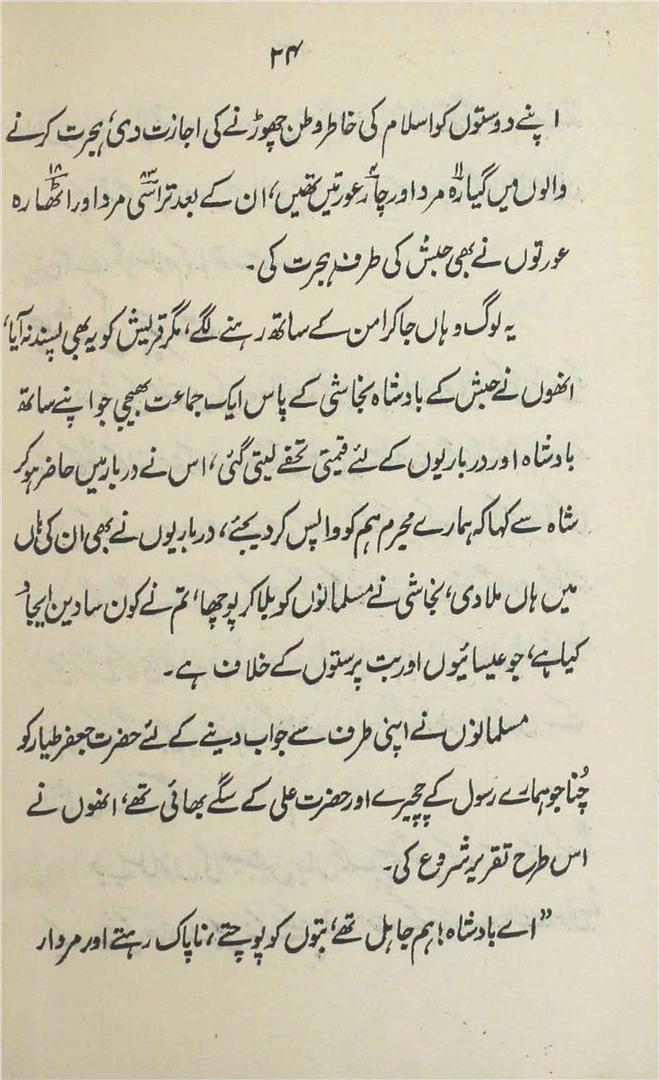 ۲۴
اپنے دوستوں کو اسلام کی خاطر وطن چھوڑنے کی اجازت دی، ہجرت کرنے
والوں میں گیارہ ۱۱ مرد اور چار ۴ عورتیں تھیں، ان کے بعد تراسی ۸۳ مرد اور اٹھارہ ۱۸
عورتوں نے بھی حبش کی طرف ہجرت کی۔
یہ لوگ وہاں جا کر امن کے ساتھ رہنے لگے، مگر قریش کو یہ بھی پسند نہ آیا،
انھوں نے حبش کے بادشاہ نجاشی کے پاس ایک جماعت بھیجی جو اپنے ساتھ
بادشاہ اور درباریوں کے لئے قیمتی تحفے لیتی گئی، اس نے دربار میں حاضر ہو کر
شاہ سے کہا کہ ہمارے مجرم ہم کو واپس کر دیجئے، درباریوں نے بھی ان کی ہاں
میں ہاں ملا دی، نجاشی نے مسلمانوں کو بلا کر پوچھا، تم نے کون سا دین ایجاد
کیا ہے، جو عیسائیوں اور بت پرستوں کے خلاف ہے۔
مسلمانوں نے اپنی طرف سے جواب دینے کے لئے حضرت جعفر طیار کو
چُنا جو ہمارے رسول کے چچیرے اور حضرت علی کے سگے بھائی تھے، انھوں نے
اس طرح تقریر شروع کی۔
”اے بادشاہ! ہم جاہل تھے، بتوں کو پوجتے، ناپاک رہتے اور مردار